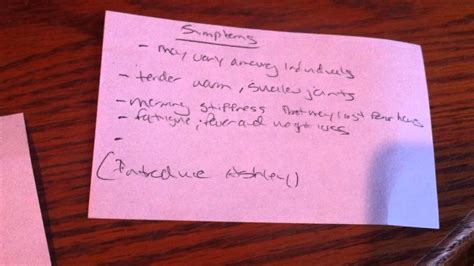 Symptems
- may vary among individuals
- tender warm, swollen joints
- morning stiffness that may last for hours
- fatigue, fever and weight loss
-
(Introduce Ashley)